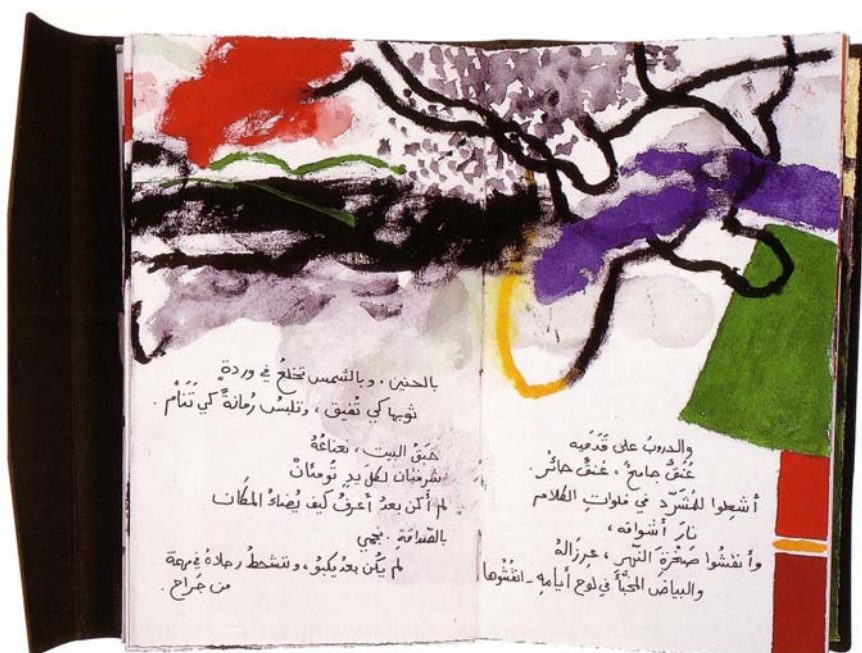 والدروبُ على قَدَميه
عُنقٌ جامحٌ ، عُنقٌ حائرْ .
أشعِلوا للمُشَرّدِ في فلواتِ الكلامِ
نارَ أشواقه ،
وأنقُشُوا صَخْرةَ النّهرِ ، عِرزالهُ
والبياضَ المخبَّأَ في لوحِ أيامِهِ - انقُشُوها
بالحنين ، وبالشمس تخلعُ في وردةٍ
ثوبها كي تُفيق ، وتلبسُ رُمانةً كي تَنَامْ .
حَبَقُ البيت ، نعناعُهُ
شرفتان لكلّ يدٍ تُومئانْ
لم أكن بعدُ أعرفُ كيف يُضاءُ المكَان
بالصّداقةِ . نجمي
لم يكُن بعدُ يكبُو ، وتتشحطُ رجلاهُ في
من جَراح .